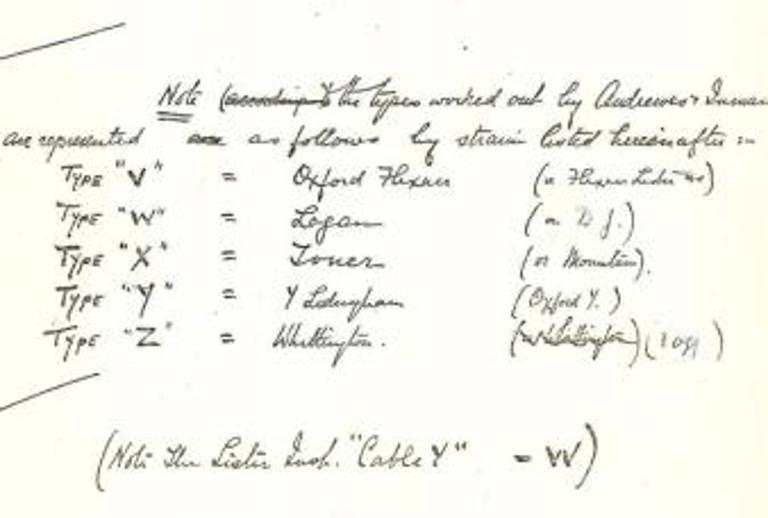 Note (according to the types worked out by Andrewes & Inman
are represented are as follows by strain listed hereinafter :-
TYPE "V" = Oxford Flexner (or Flexner Lister)
TYPE "W" = Logan (or D.J.)
TYPE "X" = Toner (or Mountain).
TYPE "Y" = Y Ledingham (Oxford Y.)
TYPE "Z" = Whittington. (or Whittington)
(Note The Lister Inst. "Cable Y" = VV)